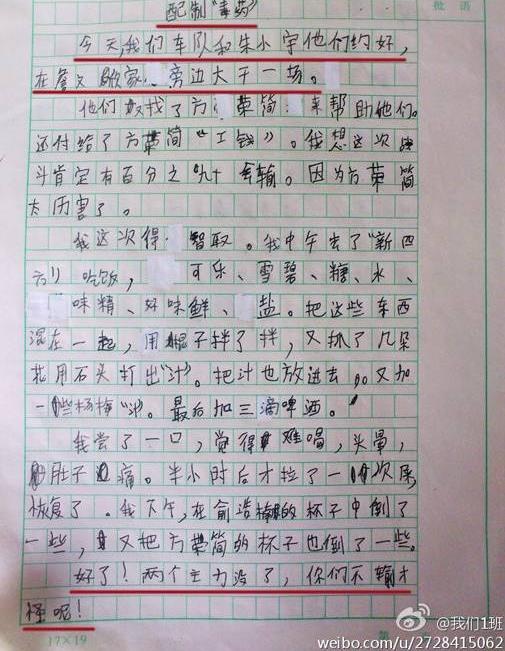 配制"毒药"
批语
今天,我们车队和朱小宇他们约好,
在詹文歇家旁边大干一场。
他们又找了方荣简来帮助他们。
还付给了方荣简"工钱"。我想这次战
斗肯定有百分之九十会输。因为方荣简
太厉害了。
我这次得智取。我中午去了"新四
方"吃饭,可乐、雪碧、糖、水、
味精、好味鲜、盐。把这些东西
混在一起,用棍子拌了拌,又抓了几朵
花用石头打出"汁"。把汁也放进去。又加
一些杨梅"汁"。最后加三滴啤酒。
我尝了一口,觉得难唱,头晕,
肚子痛。半小时后才拉了一次尿,
恢复了。我下午,在俞浩的杯子中倒了
一些,又把方荣简的杯子也倒了一些。
好了!两个主力没了,你们不输才
怪呢!
17×19
第
@我们1班
weibo.com/u/2728415062